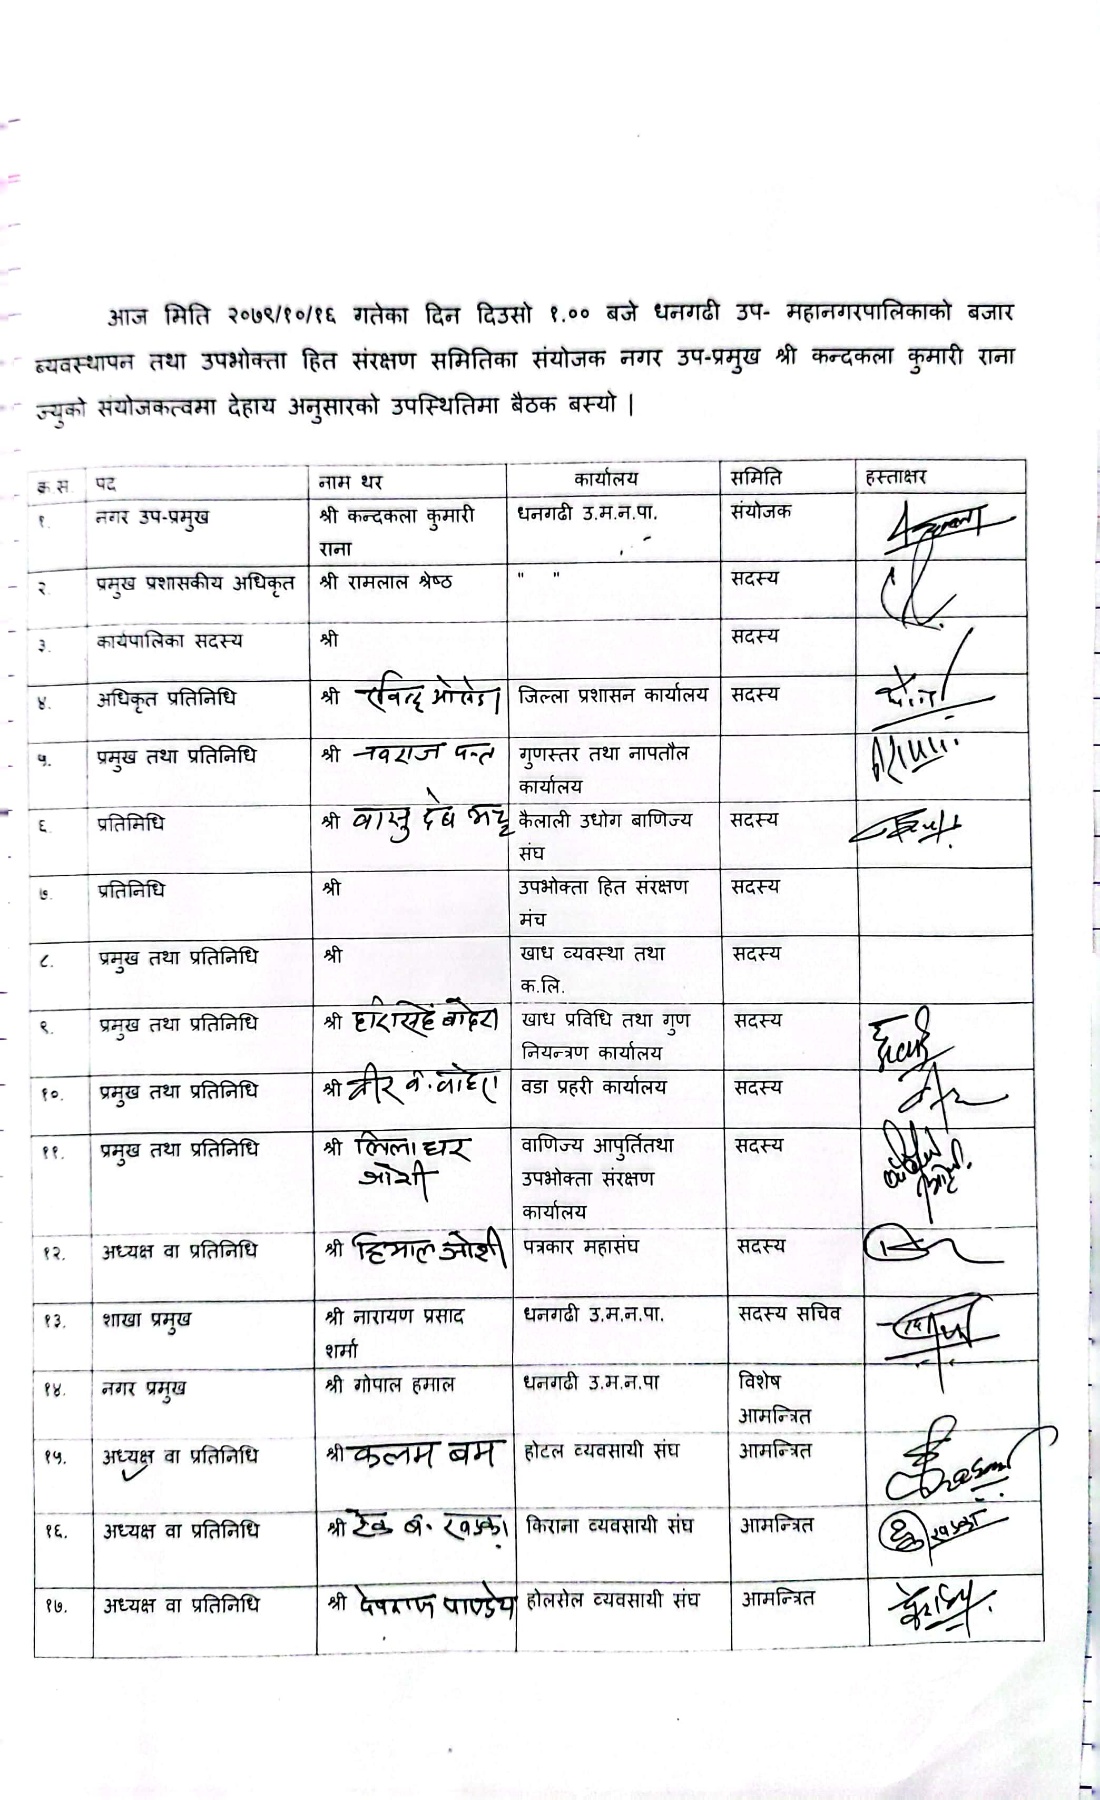 आज मिति २०७९/१०/१६ गतेका दिन दिउसो १.०० बजे धनगढी उप- महानगरपालिकाको बजार
ब्यवस्थापन तथा उपभोक्ता हित संरक्षण समितिका संयोजक नगर उप-प्रमुख श्री कन्दकला कुमारी राना
ज्युको संयोजकत्वमा देहाय अनुसारको उपस्थितिमा बैठक बस्यो |
क्र.स. पद नाम थर कार्यालय समिति हस्ताक्षर
१. नगर उप-प्रमुख श्री कन्दकला कुमारी धनगढी उ.म.न.पा. संयोजक
राना
२. प्रमुख प्रशासकीय अधिकृत श्री रामलाल श्रेष्ठ " " सदस्य
३. कार्यपालिका सदस्य श्री सदस्य
४. अधिकृत प्रतिनिधि श्री जिल्ला प्रशासन कार्यालय सदस्य
५. प्रमुख तथा प्रतिनिधि श्री नवराज पन्त गुणस्तर तथा नापतौल
कार्यालय
६. प्रतिमिधि श्री वासु देव भट्ट कैलाली उधोग बाणिज्य सदस्य
संघ
७. प्रतिनिधि श्री उपभोक्ता हित संरक्षण सदस्य
मंच
८. प्रमुख तथा प्रतिनिधि श्री खाध व्यवस्था तथा सदस्य
क.लि.
९. प्रमुख तथा प्रतिनिधि श्री खाध प्रविधि तथा गुण सदस्य
नियन्त्रण कार्यालय
१०. प्रमुख तथा प्रतिनिधि श्री वीर ब. वडा प्रहरी कार्यालय सदस्य
११. प्रमुख तथा प्रतिनिधि श्री लिलाधर वाणिज्य आपुर्तितथा सदस्य
जोशी उपभोक्ता संरक्षण
कार्यालय
१२. अध्यक्ष वा प्रतिनिधि श्री हिमाल जोशी पत्रकार महासंघ सदस्य
१३. शाखा प्रमुख श्री नारायण प्रसाद धनगढी उ.म.न.पा. सदस्य सचिव
शर्मा
१४. नगर प्रमुख श्री गोपाल हमाल धनगढी उ.म.न.पा विशेष
आमन्त्रित
१५. अध्यक्ष वा प्रतिनिधि श्री कलम बम होटल व्यवसायी संघ आमन्त्रित
१६. अध्यक्ष वा प्रतिनिधि श्री टेक ब. खड्का किराना व्यवसायी संघ आमन्त्रित
१७. अध्यक्ष वा प्रतिनिधि श्री देवराज पाण्डेय होलसेल व्यवसायी संघ आमन्त्रित